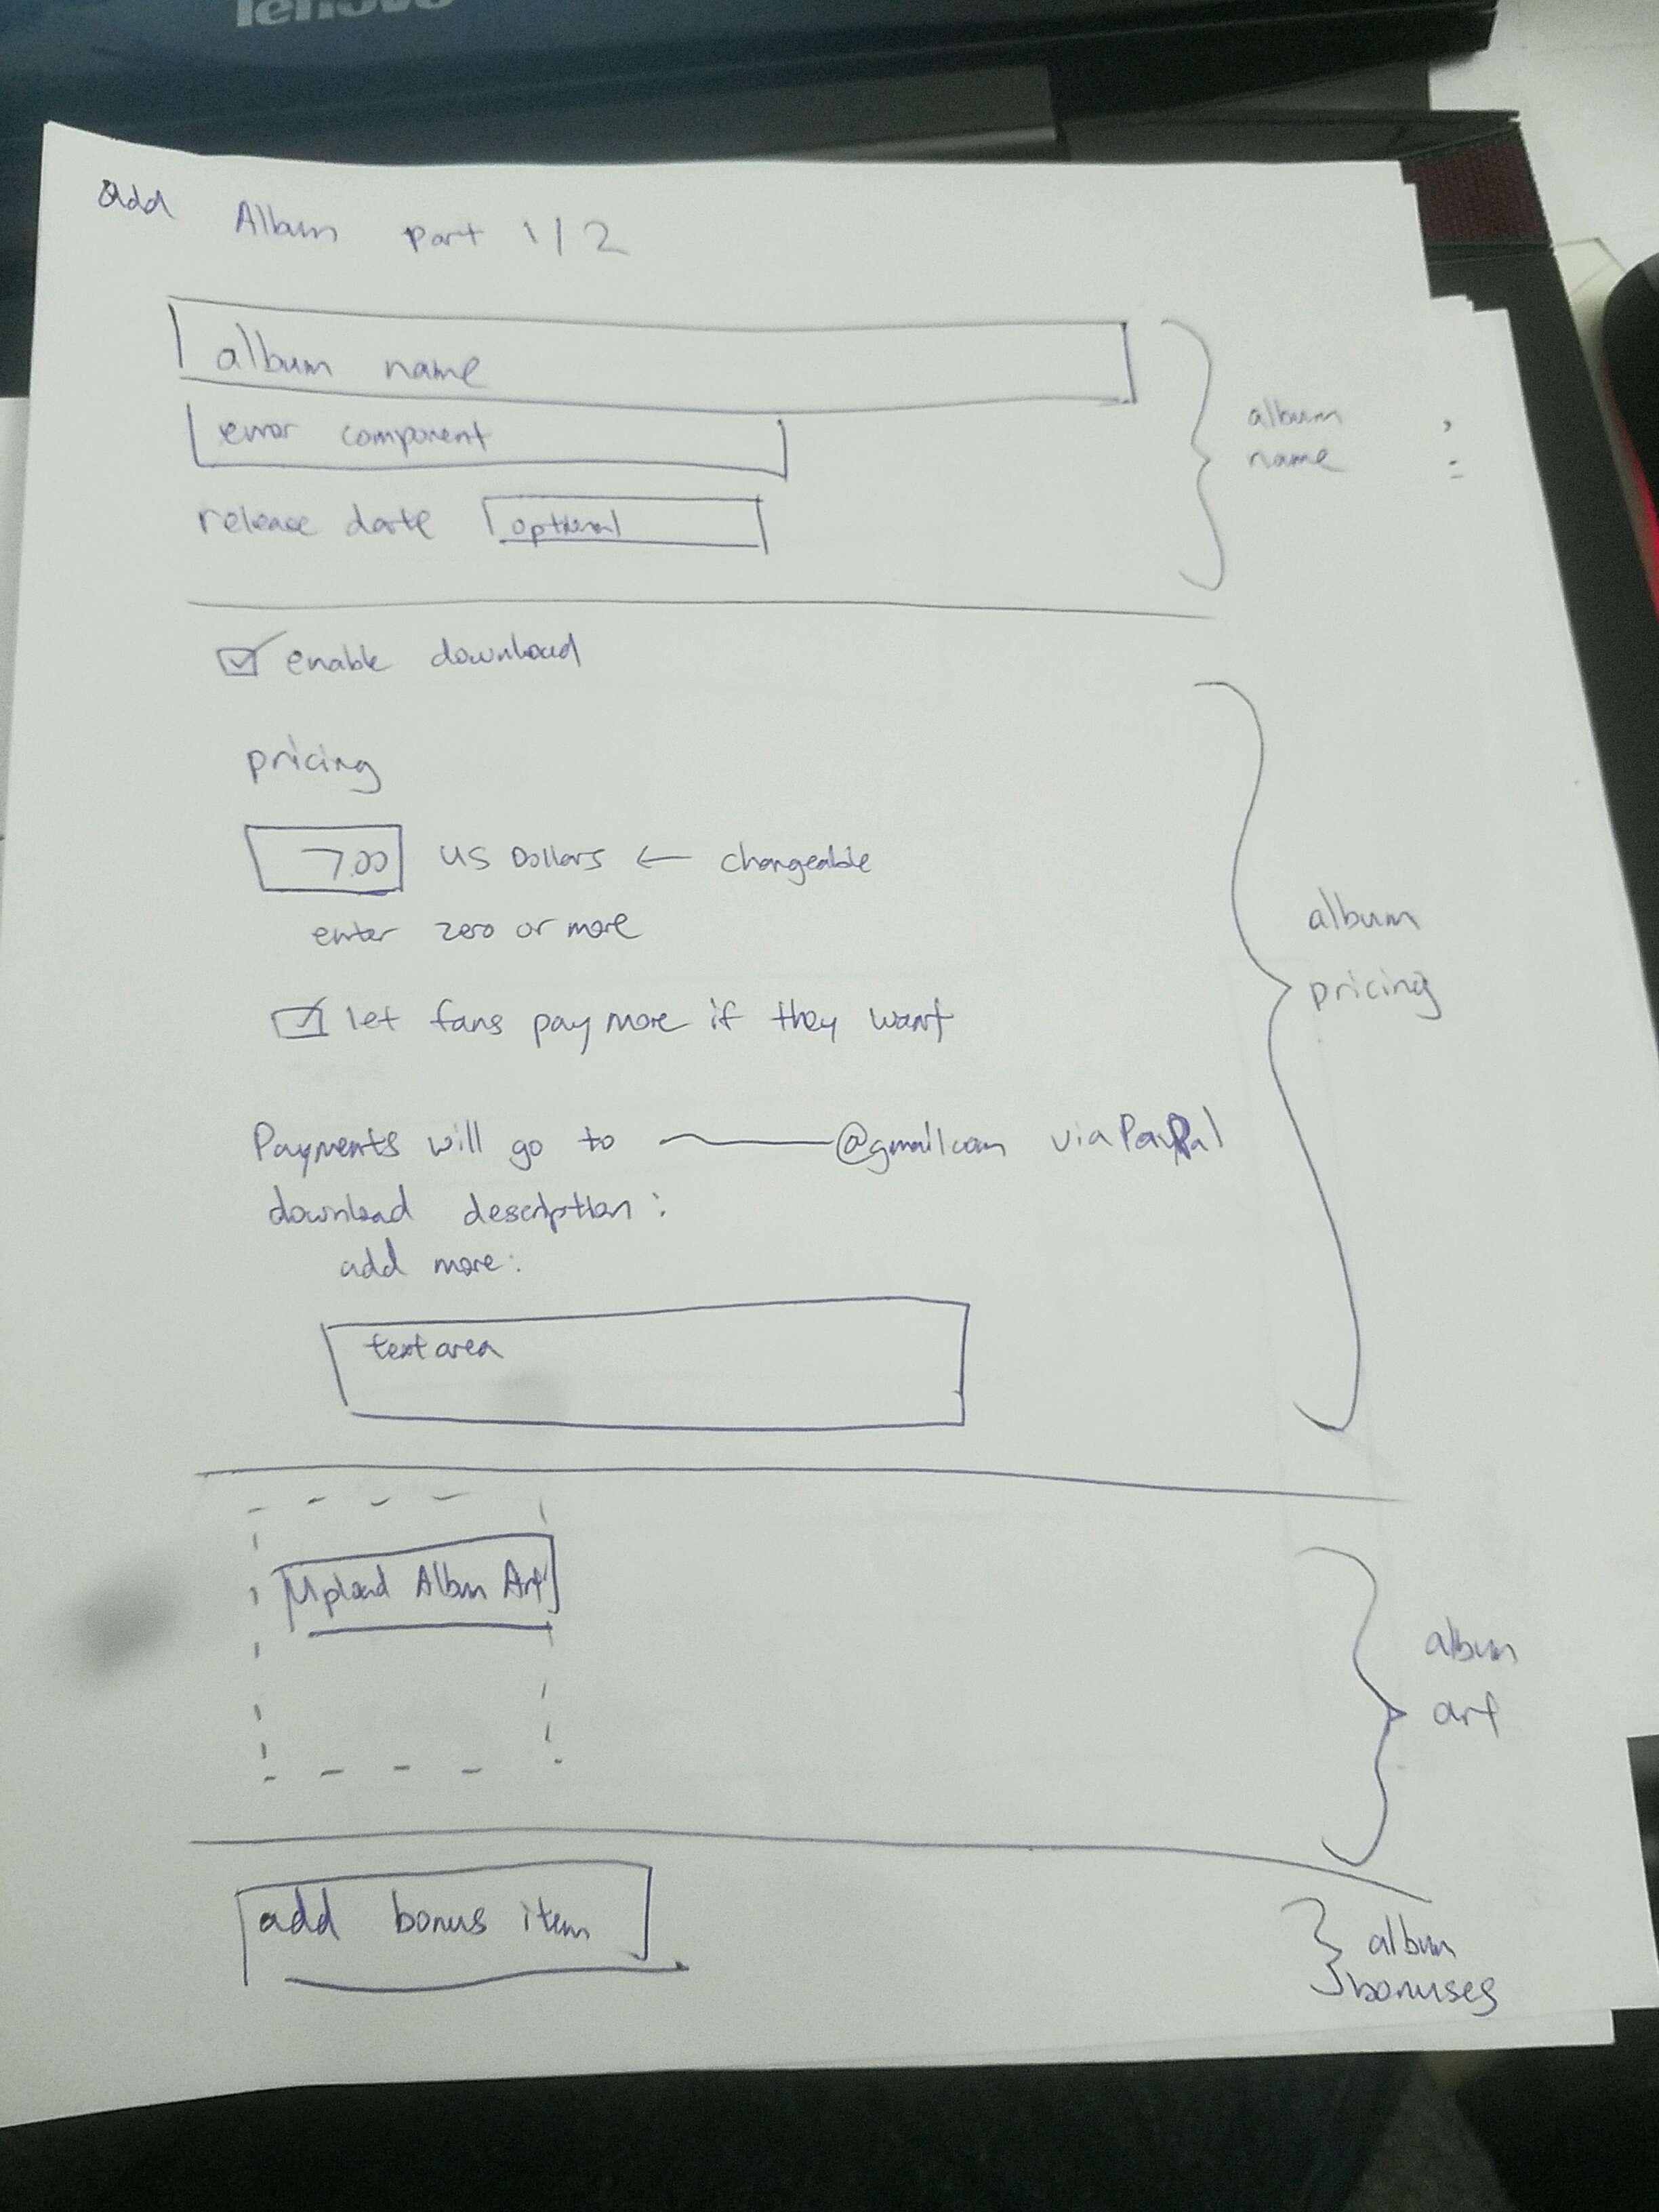 lenovo
add Album part 1/2
album name
error component
album
name
release date optional
enable download
pricing
7.00 US Dollars ← changeable
enter zero or more
album
pricing
let fans pay more if they want
Payments will go to @gmail.com via PayPal
download description:
add more:
text area
Upload Album Art
album
art
add bonus item
album
bonuses